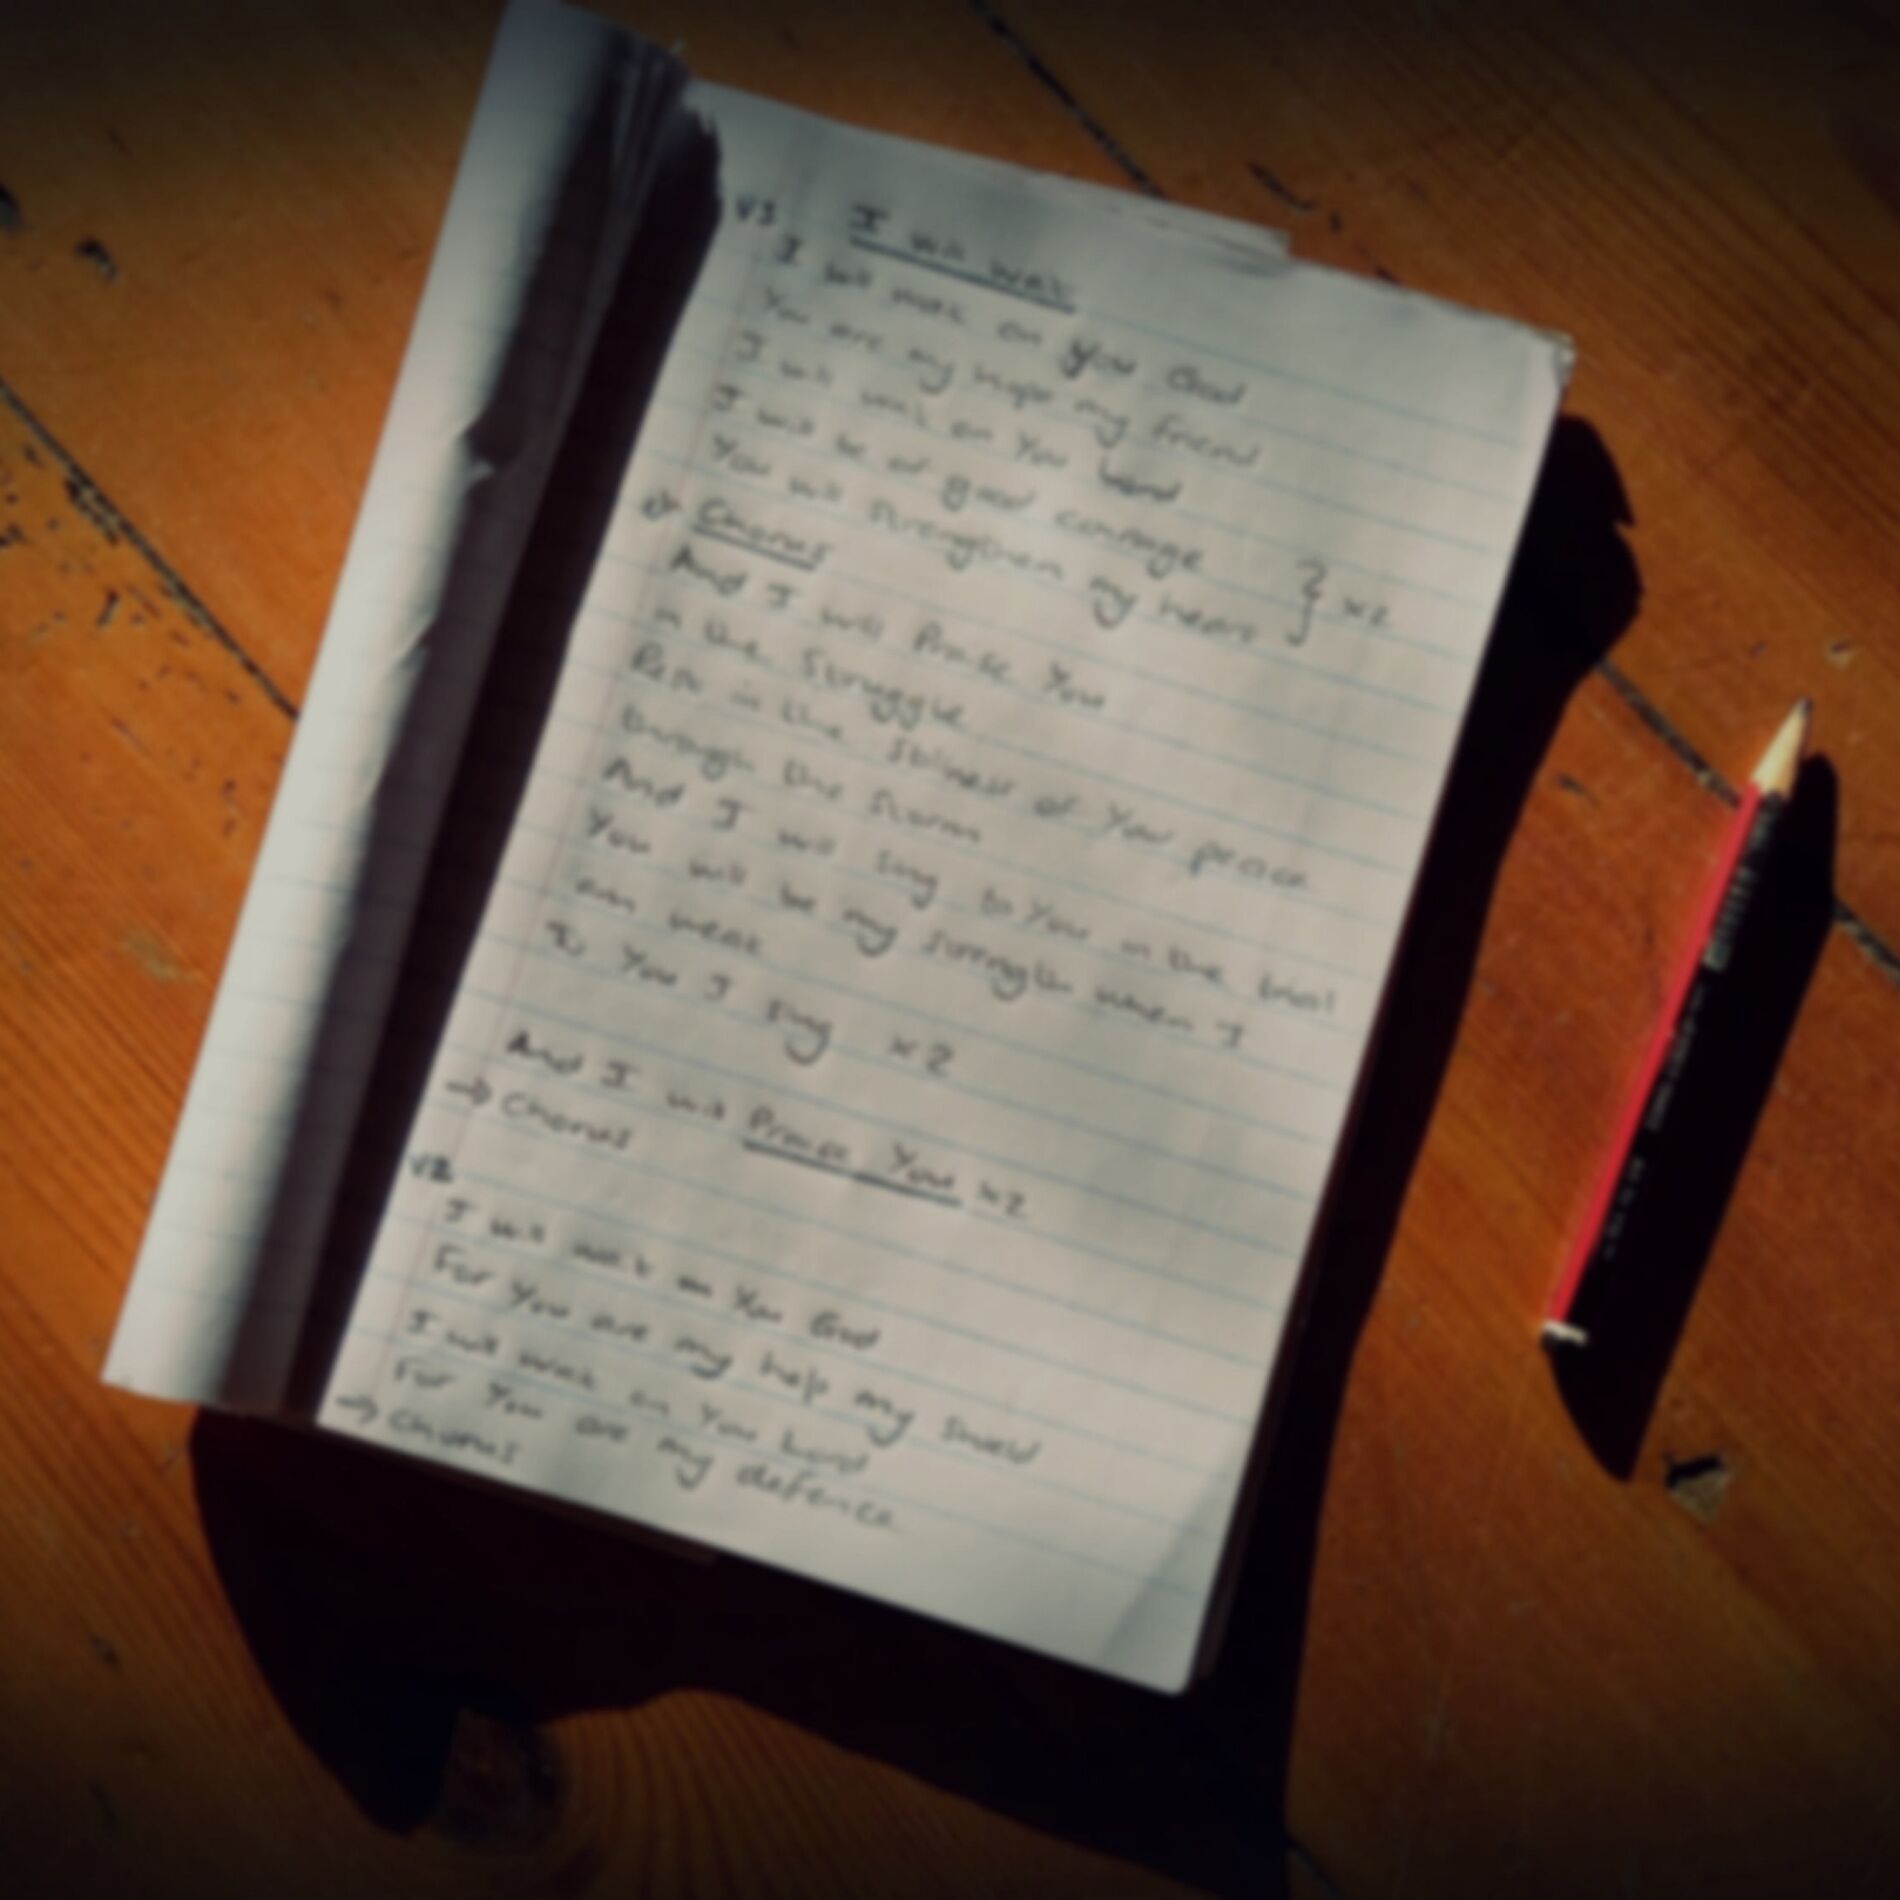 I will wait
V1
I will wait on You God
You are my hope my friend
I will wait on You Lord
I will be of good courage
You will strengthen my heart } x2
→ Chorus
And I will Praise You
in the struggle
Rest in the stillness of Your peace
through the storm
And I will sing to You in the trial
You will be my strength when I
am weak
To You I sing x2
And I will Praise You x2
→ Chorus
V2
I will wait on You God
For You are my help my shield
I will wait on You Lord
For You are my defence
→ Chorus